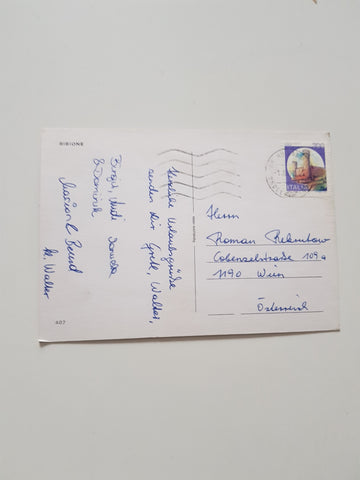 BIBIONE
Herzliche Urlaubsgrüße
senden Dir Grete, Walter,
Birgit, Andi
& Dominik
M. Walter
407
ITALIA
Herrn
Roman
Cobenzlstraße 109a
1190 Wien
Österreich